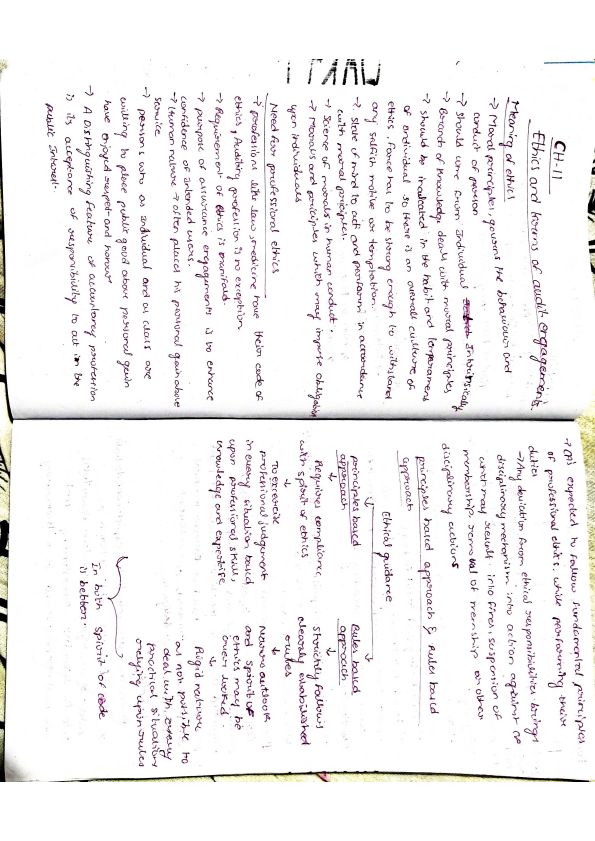 CH-11
Ethics and terms of audit engagements.
Meaning of ethics
→ Moral principles, governs the behaviour and
conduct of person
→ Should come from Individual Intrinsically
→ Branch of knowledge deals with moral principles
→ should be inculcated in the habit and temperament
of individual so there is an overall culture of
ethics. Force has to be strong enough to withstand
any selfish motive or temptation.
→ State of mind to act and perform in accordance
with moral principles.
→ Science of morals in human conduct.
→ Morals and principles which may impose obligation
upon individuals
Need for professional ethics
→ professions like law, medicine have their code of
ethics, Auditing profession is no exception
→ Requirement of Ethics is manifold.
→ purpose of assurance engagements is to enhance
confidence of intended users.
→ Human nature → often places his personal gain above
service
→ persons who as individual and as class are
willing to place public good above personal gain
have enjoyed respect and honour
→ A Distinguishing feature of accountancy profession
is its acceptance of responsibility to act in the
public Interest.
→ expected to follow fundamental principles
of professional ethics, while performing their
duties
→ Any deviation from ethical responsibilities brings
disciplinary mechanism into action against
which may result into fines, suspension of
membership removal of memship or other
disciplinary actions
principles based approach & Rules based
approach
Ethical guidance
principles based
approach
Requires compliance
with spirit of ethics
To excercise
professional judgement
in every situation based
upon professional skill,
knowledge and expertise
Rules based
approach
Strichtly follows
clearly established
rules
Narrow outlook
and spirit of
ethics may be
over looked.
Rigid nature
as not possible to
deal with every
practical situation
relying upon rules
In both spirit of code
is better.